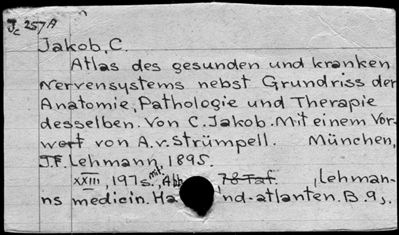 Jc 257A
Jakob, C.
Atlas des gesunden und kranken
Nervensystems nebst Grundriss der
Anatomie, Pathologie und Therapie
desselben. Von C. Jakob. Mit einem Vor-
wort von A. v. Strümpell. München,
J.F. Lehmann, 1895.
XXIII, 197 s. mit Abb 78 Taf. (Lehman-
ns medicin. Ha nd-atlanten. B. 9).